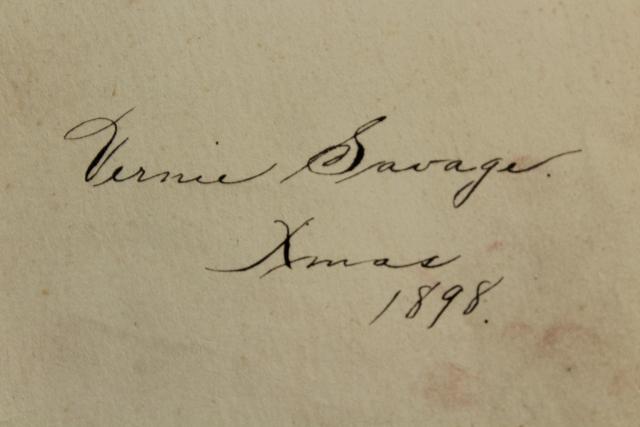 Vernie Savage.
Xmas
1898.